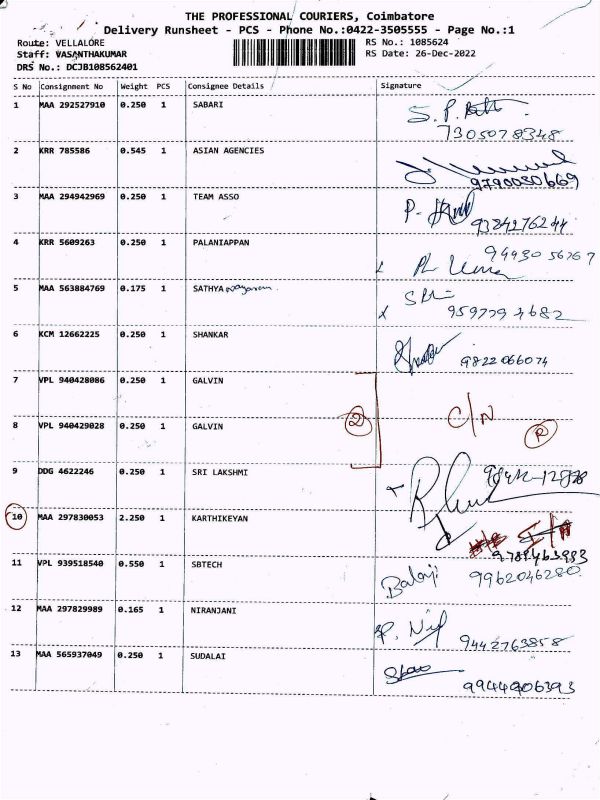 THE PROFESSIONAL COURIERS, Coimbatore
Delivery Runsheet - PCS - Phone No.:0422-3505555 - Page No.:1
Route: VELLALORE RS No.: 1085624
Staff: VASANTHAKUMAR RS Date: 26-Dec-2022
DRS No.: DCJB108562401
S No Consignment No Weight PCS Consignee Details Signature
1 MAA 292527910 0.250 1 SABARI S. P.
7305078348
2 KRR 785586 0.545 1 ASIAN AGENCIES
9790080669
3 MAA 294942969 0.250 1 TEAM ASSO P.
9384276244
4 KRR 5609263 0.250 1 PALANIAPPAN 94430 56767
5 MAA 563884769 0.175 1 SATHYA
6 KCM 12662225 0.250 1 SHANKAR
9822066074
7 VPL 940428086 0.250 1 GALVIN
C/N
8 VPL 940429028 0.250 1 GALVIN 2 R
9 DDG 4622246 0.250 1 SRI LAKSHMI
10 MAA 297830053 2.250 1 KARTHIKEYAN
11 VPL 939518540 0.550 1 SBTECH
Balaji 9962046280
12 MAA 297829989 0.165 1 NIRANJANI
9442763858
13 MAA 565937049 0.250 1 SUDALAI
9944906393